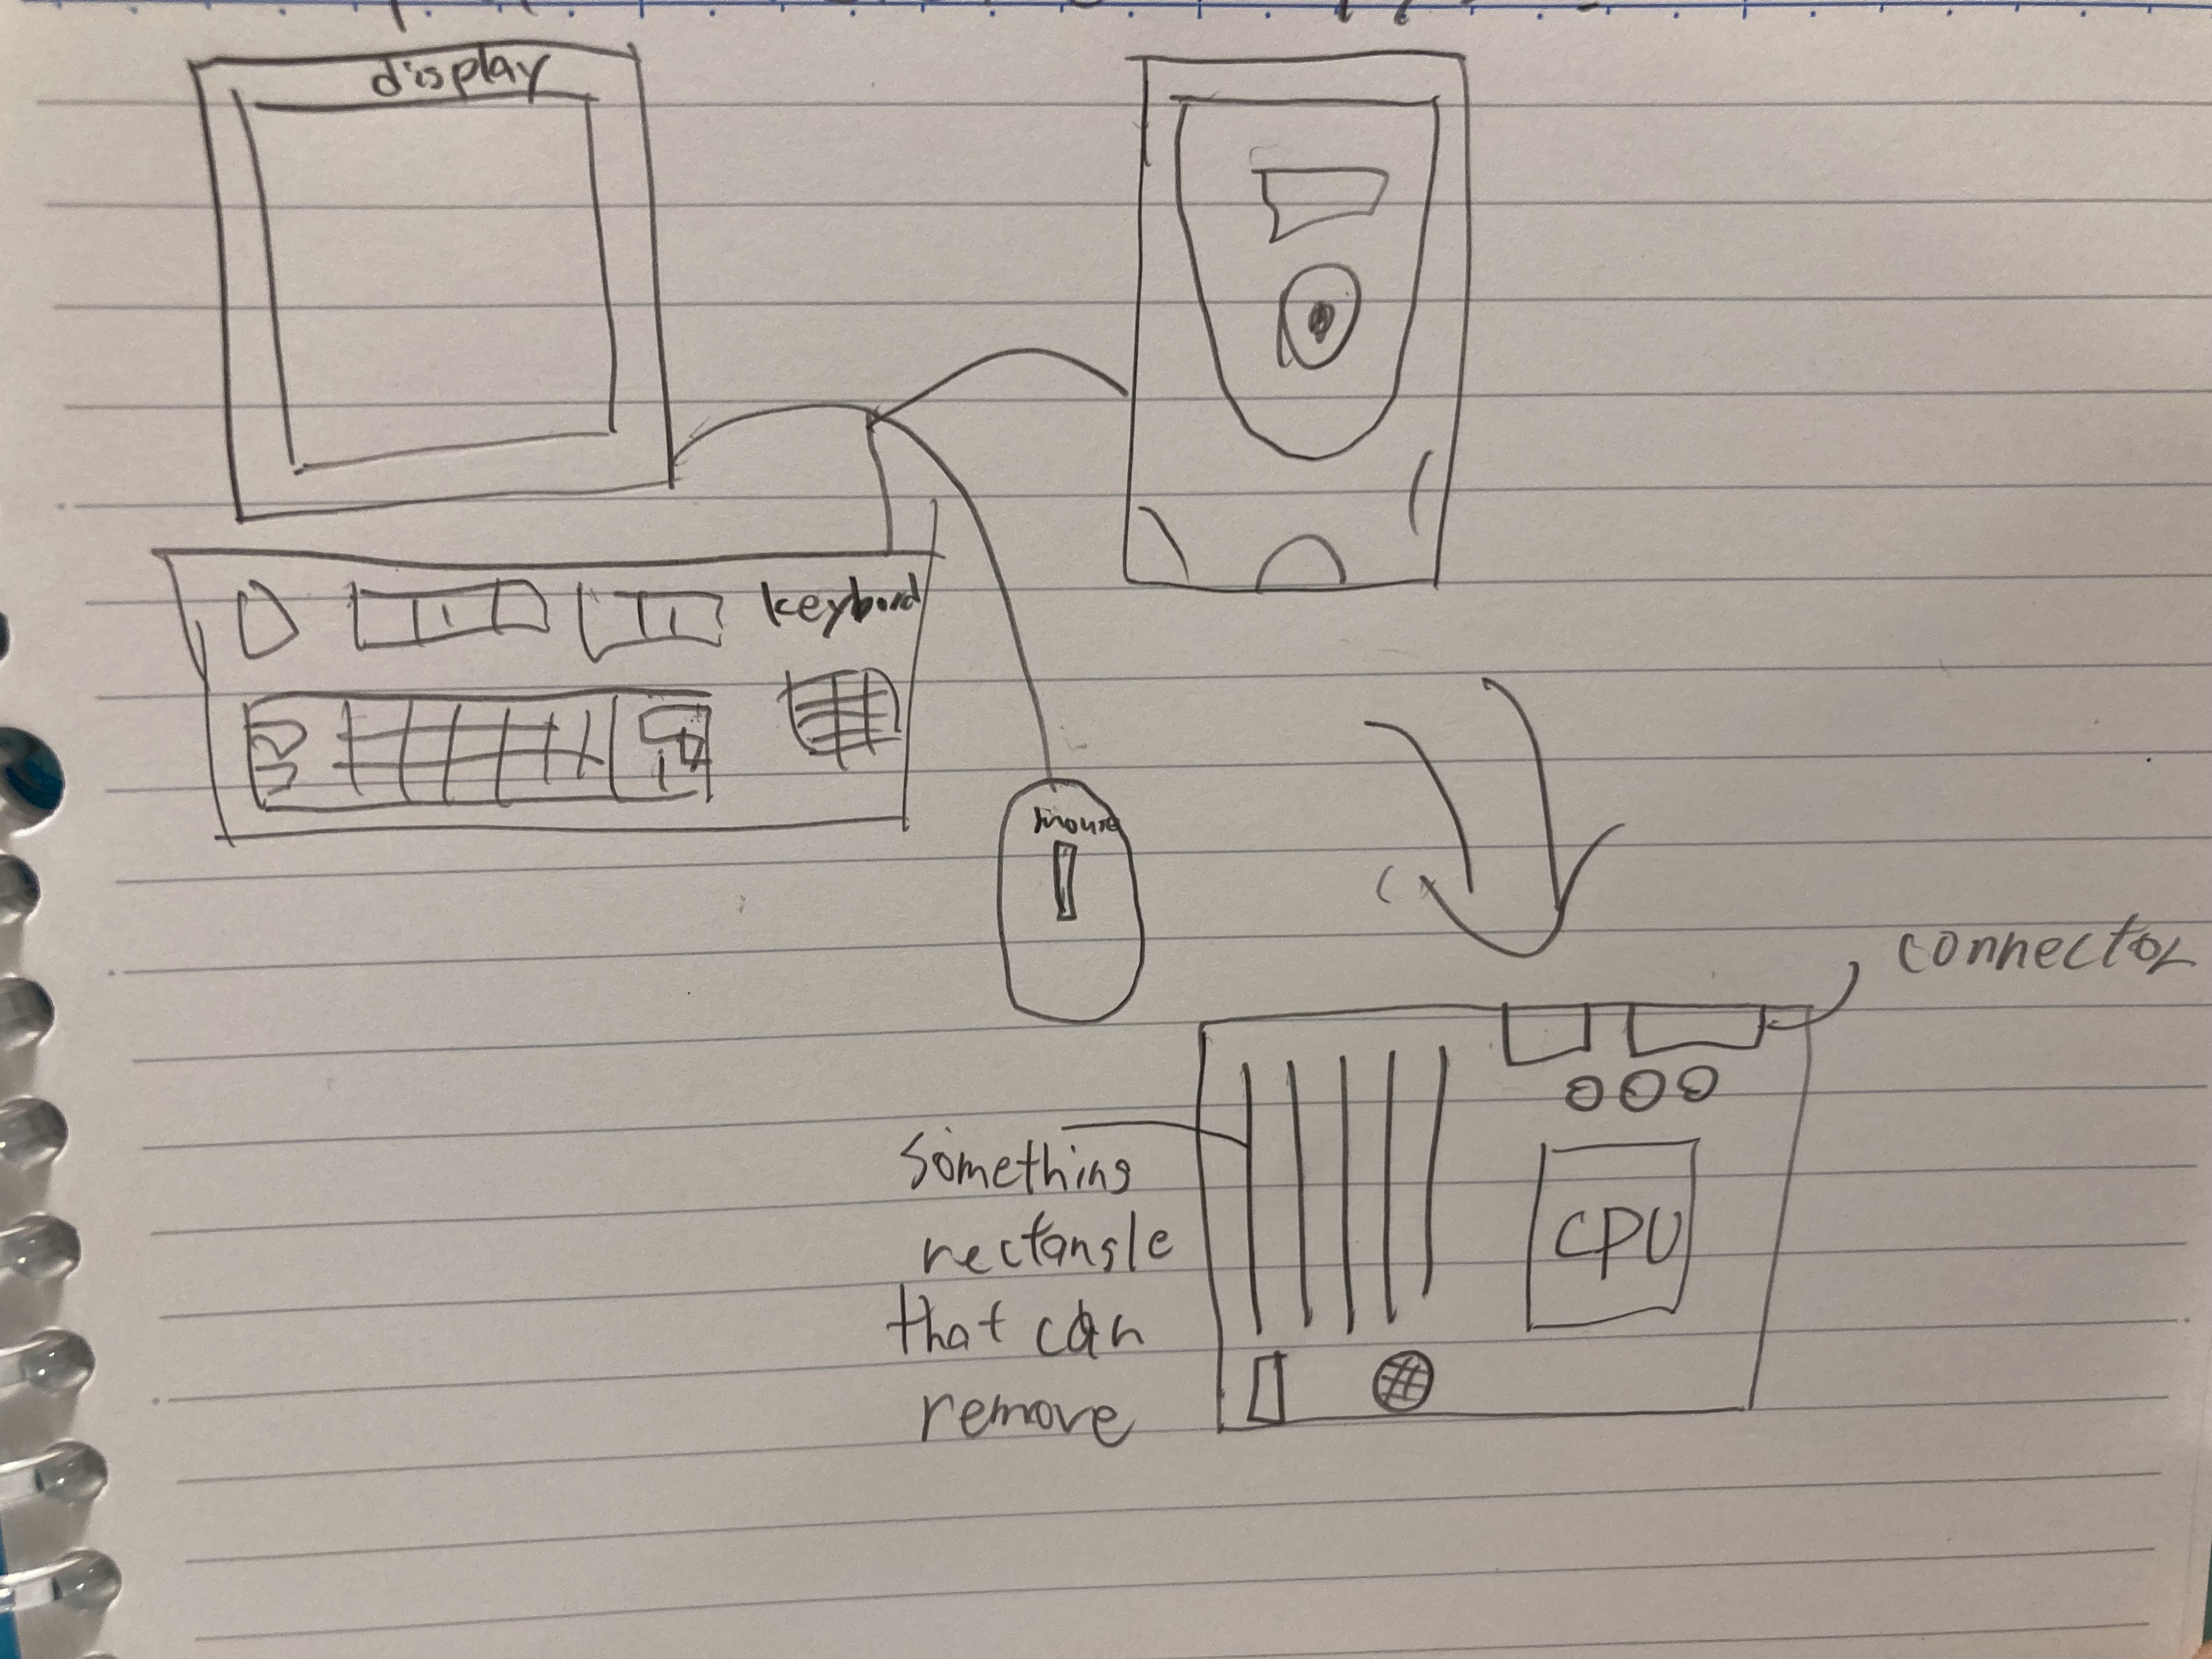 display
keyboard
mouse
connector
something
rectangle
that can
remove
CPU